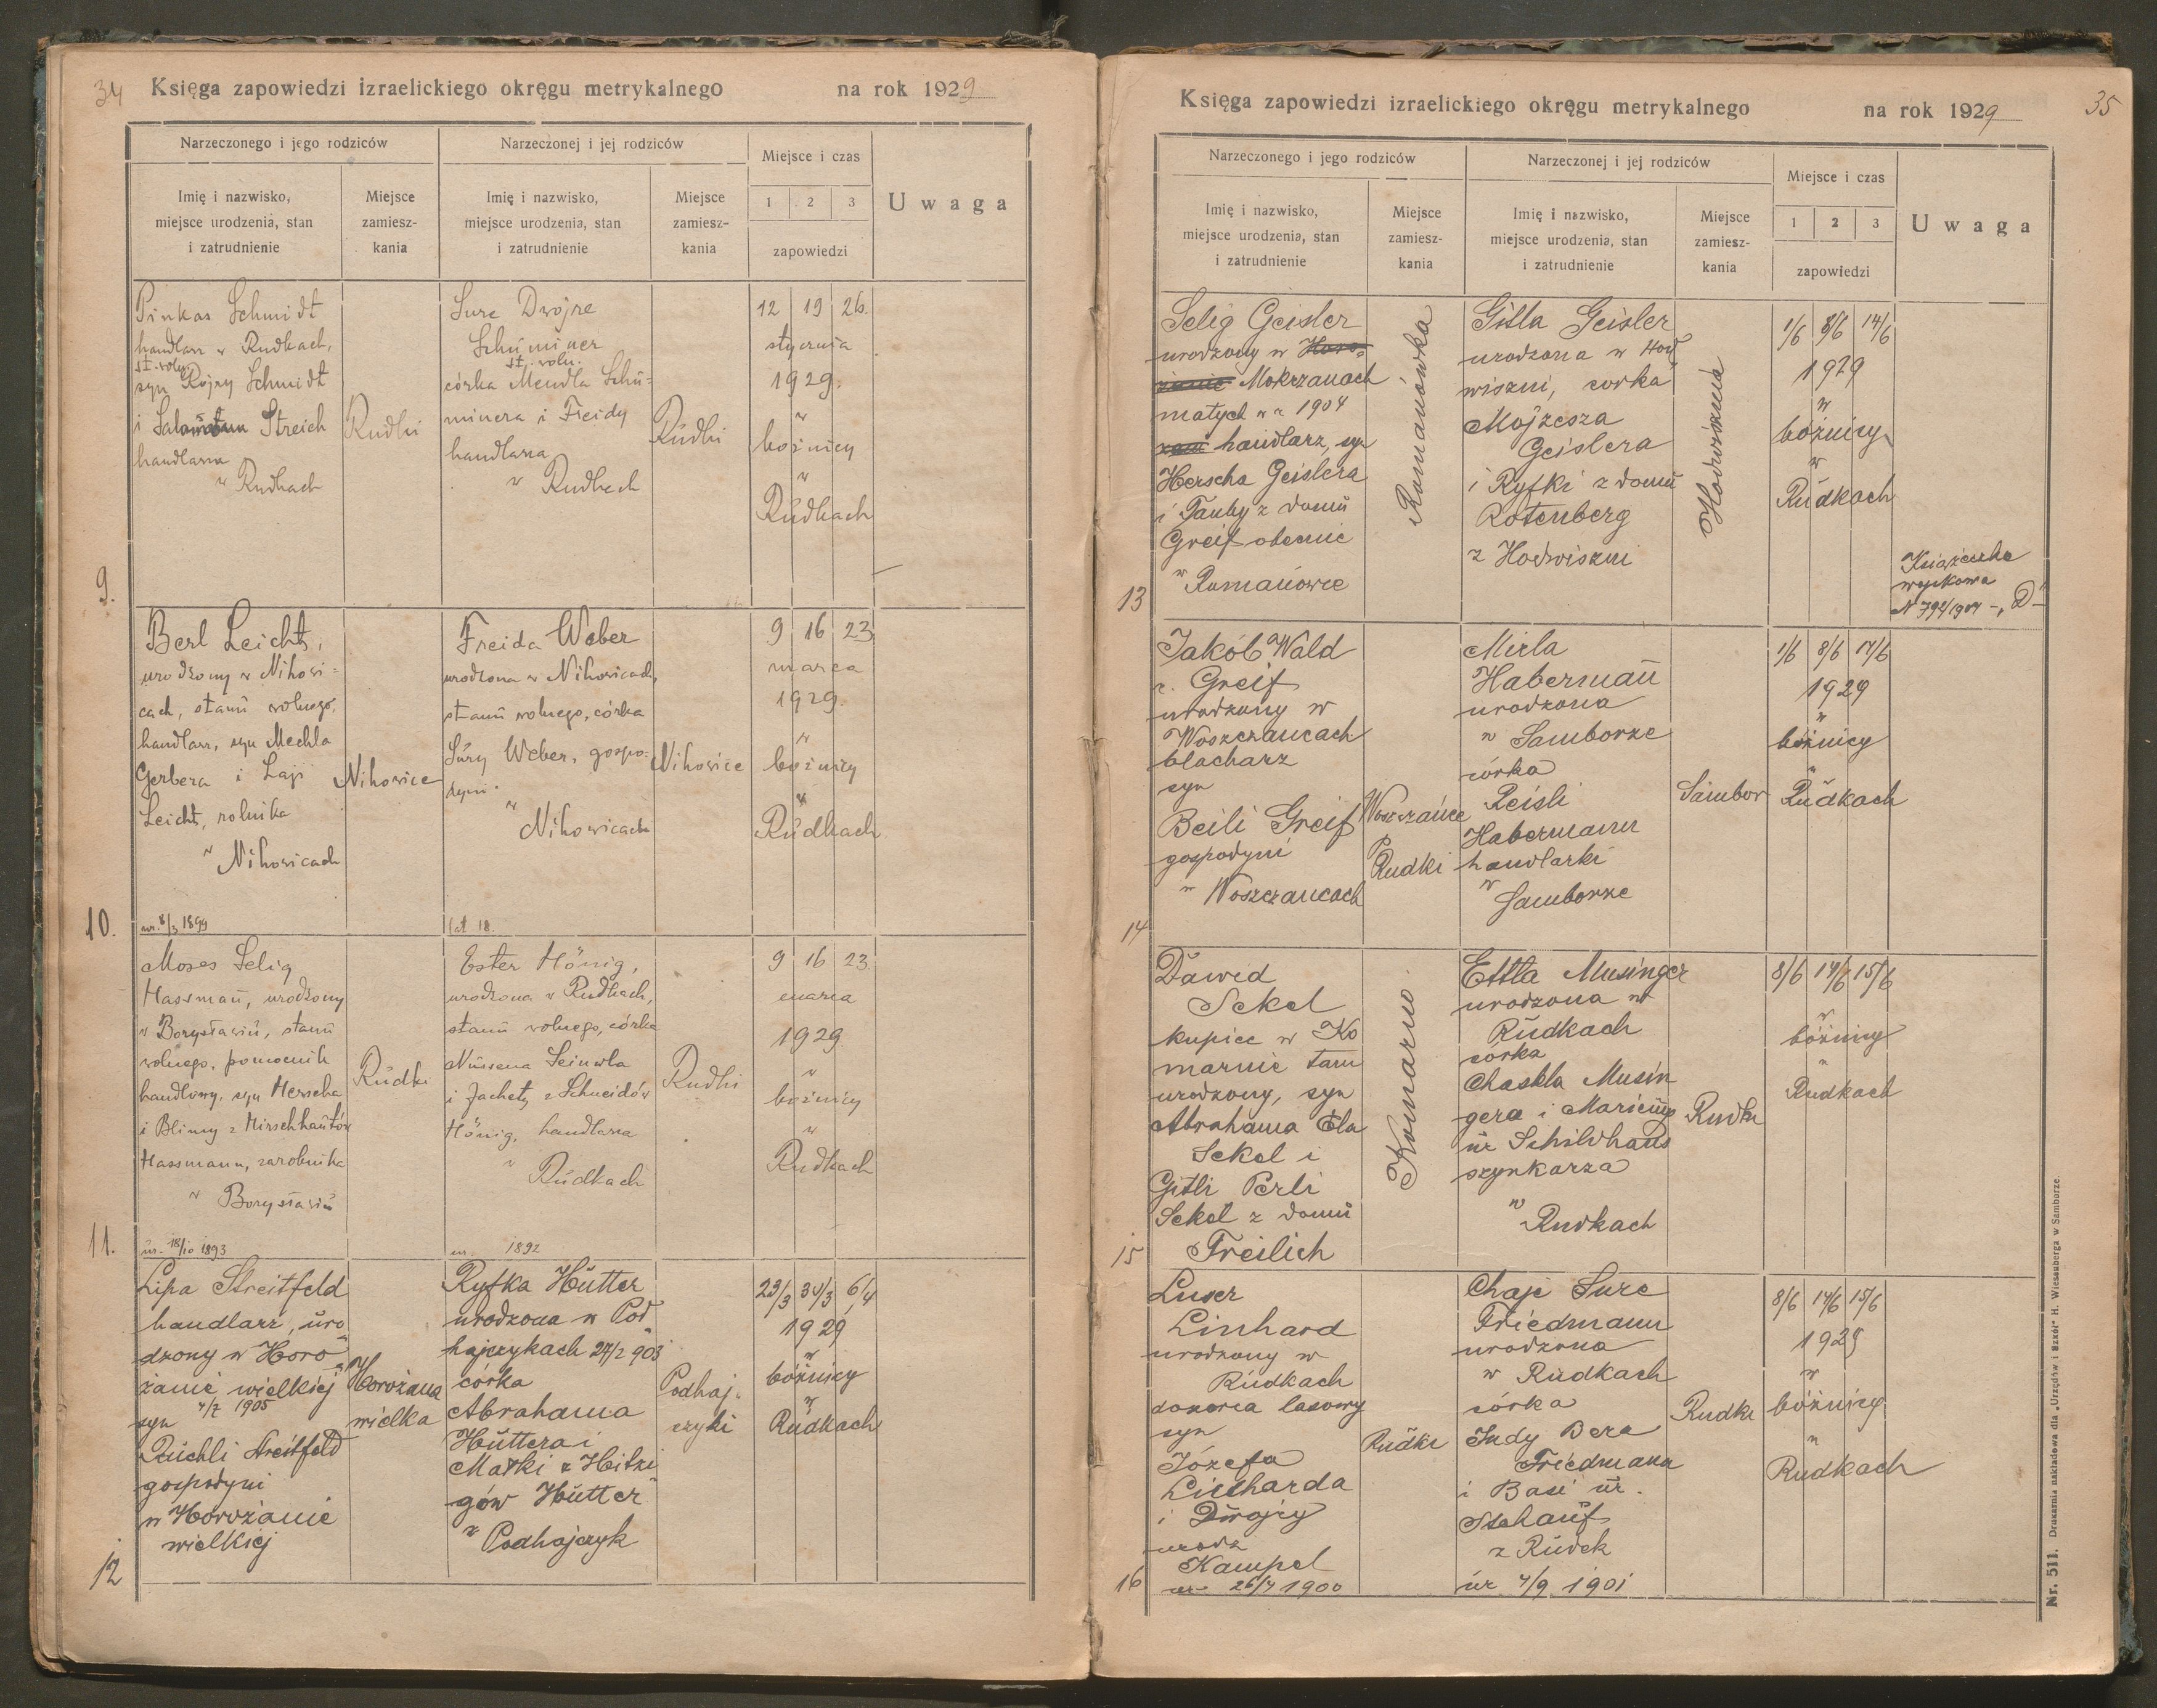 34 Księga zapowiedzi izraelickiego okręgu metrykalnego na rok 1929
Narzeczonego i jego rodziców
Narzeczonej i jej rodziców
Miejsce i czas
Uwaga
Imię i nazwisko,
miejsce urodzenia, stan
i zatrudnienie
Miejsce
zamiesz-
kania
Imię i nazwisko,
miejsce urodzenia, stan
i zatrudnienie
Miejsce
zamiesz-
kania
1 2 3
zapowiedzi
Pinkas Schmidt
handlarz w Rudkach,
st. woln.
syn Rojzy Schmidt
i Streich
handlarza
w Rudkach
Rudki
Sure Dwojre
Schüminer
st. woln.
córka Mendla Schü-
minera i Freidy
handlarza
w Rudkach
Rudki
12 19 26.
stycznia
1929.
w
bożnicy
w
Rudkach
9.
Berl Leicht,
urodzony w Nihowi-
cach, stanu wolnego,
handlarz, syn Mechla
Gerbera i Laji
Leicht, rolnika
w Nihowicach
ur. 8/3 1899
Nihowice
Freida Weber
urodzona w Nihowicach,
stanu wolnego, córka
Sury Weber, gospo-
dyni
w
Nihowicach
lat 18.
Nihowice
9 16 23
marca
1929.
w
bożnicy
w
Rudkach
10.
Moses Selig
Hassman, urodzony
w Borysławiu, stanu
wolnego, pomocnik
handlowy, syn Herscha
i Blimy z Hirschhautów
Hassmann, zarobnika
w Borysławiu
ur. 18/10 1893
Rudki
Ester Hönig,
urodzona w Rudkach,
stanu wolnego, córka
Nusena Seinwla
i Jachety z Schneidów
Hönig, handlarza
w Rudkach
ur. 1892
Rudki
9 16 23.
marca
1929.
w
bożnicy
w
Rudkach
11.
Lipa Streitfeld
handlarz, uro
dzony w Horo
żanie wielkiej
4/2 1905
syn
Ruchli Streitfeld
gospodyni
w Horożanie
wielkiej
Horożana
wielka
Ryfka Hütter
urodzona w Pod
hajczykach 24/2 903
córka
Abrahama
Hüttera i
Matki z Hitzi
gów Hütter
z Podhajczyk
Podhaj-
czyki
23/3 30/3 6/4
1929
w
bóżnicy
w
Rudkach
12
Księga zapowiedzi izraelickiego okręgu metrykalnego na rok 1929 35
Narzeczonego i jego rodziców
Narzeczonej i jej rodziców
Miejsce i czas
Uwaga
Imię i nazwisko,
miejsce urodzenia, stan
i zatrudnienie
Miejsce
zamiesz-
kania
Imię i nazwisko,
miejsce urodzenia, stan
i zatrudnienie
Miejsce
zamiesz-
kania
1 2 3
zapowiedzi
Selig Geisler
urodzony w Horo-
żanie Mokrzanach
małych w r 1904
handlarz, syn
Herscha Geislera
i Tauby z domu
Greif obecnie
w Rumanowce
Rumanówka
Gitla Geisler
urodzona w Hod
wiszni, corka
Mojżesza
Geislera
i Ryfki z domu
Rotenberg
z Hodwiszni
Hodwisznia
1/6 8/6 14/6
1929
w
bóżnicy
w
Rudkach
Książeczka
wojskowa
N 792/1904 - "D"
13
Jakób Wald
r. Greif
urodzony w
Woszczancach
blacharz
syn
Beili Greif
gospodyni
w Woszczancach
Woszczańce
p
Rudki
Mirla
Haberman
urodzona
w Samborze
córka
Reisli
Habermann
handlarki
w
Samborze
Sambor
1/6 8/6 14/6
1929
w
bóżnicy
w
Rudkach
14
Dawid
Sekel
kupiec w Ko
marnie tam
urodzony, syn
Abrahama Ela
Sekel i
Gitli Perli
Sekel z domu
Freilich
Komarno
Ettla Musinger
urodzona w
Rudkach
córka
Chaskla Musin
gera i
ur Schildhaus
szynkarza
w
Rudkach
Rudki
8/6 14/6 15/6
w
bóżnicy
w
Rudkach
15
Luser
Linhard
urodzony w
Rudkach
dozorca lasowy
syn
Józefa
Linharda
i Dwojry
urodz
Kampel
ur 26/4 1900
Rudki
Chaje Sure
Friedmann
urodzona
w Rudkach
córka
Judy Bera
Friedmana
i Basi ur.
Schauf
z Rudek
ur 4/9 1901
Rudki
8/6 14/6 15/6
1929
w
bóżnicy
w
Rudkach
16
Nr. 511. Drukarnia nakładowa dla „Urzędów i Szkół" H. Wiesenberga w Samborze.